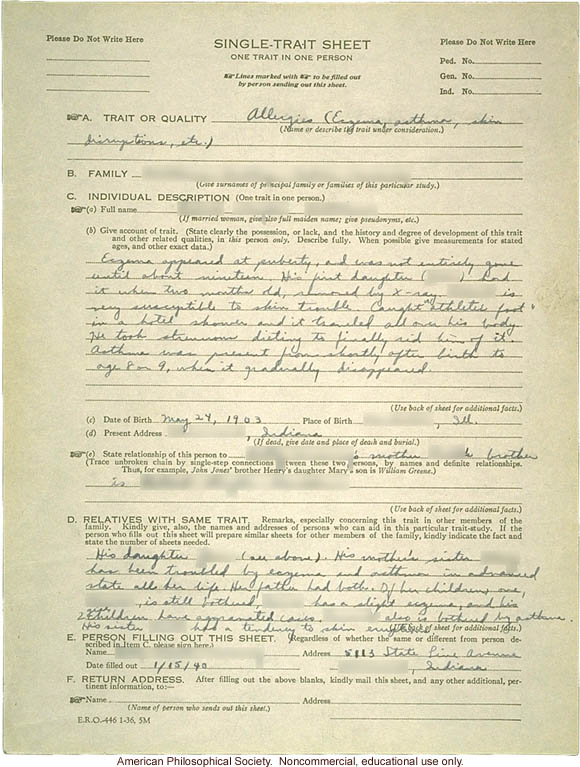 Please Do Not Write Here
SINGLE-TRAIT SHEET
ONE TRAIT IN ONE PERSON
☞Lines marked with ☞ to be filled out
by person sending out this sheet.
Please Do Not Write Here
Ped. No.
Gen. No.
Ind. No.
☞A. TRAIT OR QUALITY Allergies (Eczema, asthma, skin
(Name or describe the trait under consideration.)
disruptions, etc.)
B. FAMILY
(Give surnames of principal family or families of this particular study.)
C. INDIVIDUAL DESCRIPTION (One trait in one person.)
☞(a) Full name
(If married woman, give also full maiden name; give pseudonyms, etc.)
(b) Give account of trait. (State clearly the possession, or lack, and the history and degree of development of this trait
and other related qualities, in this person only. Describe fully. When possible give measurements for stated
ages, and other exact data.)
Eczema appeared at puberty, and was not entirely gone
until about nineteen. His first daughter ( ) had
it when two months old, removed by X-ray. is
very susceptible to skin trouble. Caught "athlete's foot"
in a hotel shower and it traveled all over his body.
He took strenuous dieting to finally rid him of it.
Asthma was present from shortly after birth to
age 8 or 9, when it gradually disappeared.
(Use back of sheet for additional facts.)
(c) Date of Birth May 24, 1903 Place of Birth , Ill.
(d) Present Address , Indiana
(If dead, give date and place of death and burial.)
☞(e) State relationship of this person to 's mother's brother
(Trace unbroken chain by single-step connections tween these two persons, by names and definite relationships.
Thus, for example, John Jones' brother Henry's daughter Mary's son is William Greene.)
is
(Use back of sheet for additional facts.)
D. RELATIVES WITH SAME TRAIT. Remarks, especially concerning this trait in other members of the
family. Kindly give, also, the names and addresses of persons who can aid in this particular trait-study. If the
person who fills out this sheet will prepare similar sheets for other members of the family, kindly indicate the fact and
state the number of sheets needed.
His daughter (see above). His mother's sister
has been troubled by eczema and asthma in advanced
state all her life. Her father had both. Of her children, one,
, is still bothered has a slight eczema, and his
2 children have aggravated cases. also is bothered by asthma.
His sister had a tendency to skin
(Use back of sheet for additional facts.)
E. PERSON FILLING OUT THIS SHEET. (Regardless of whether the same or different from person de-
scribed in Item C, please sign here.)
Name Address 5113 State Line Avenue
Date filled out 1/15/40 , Indiana
F. RETURN ADDRESS. After filling out the above blanks, kindly mail this sheet, and any other additional, per-
tinent information, to:—
☞Name Address
(Name of person who sends out this sheet.)
E.R.O.-446 1-36, 5M
American Philosophical Society. Noncommercial, educational use only.